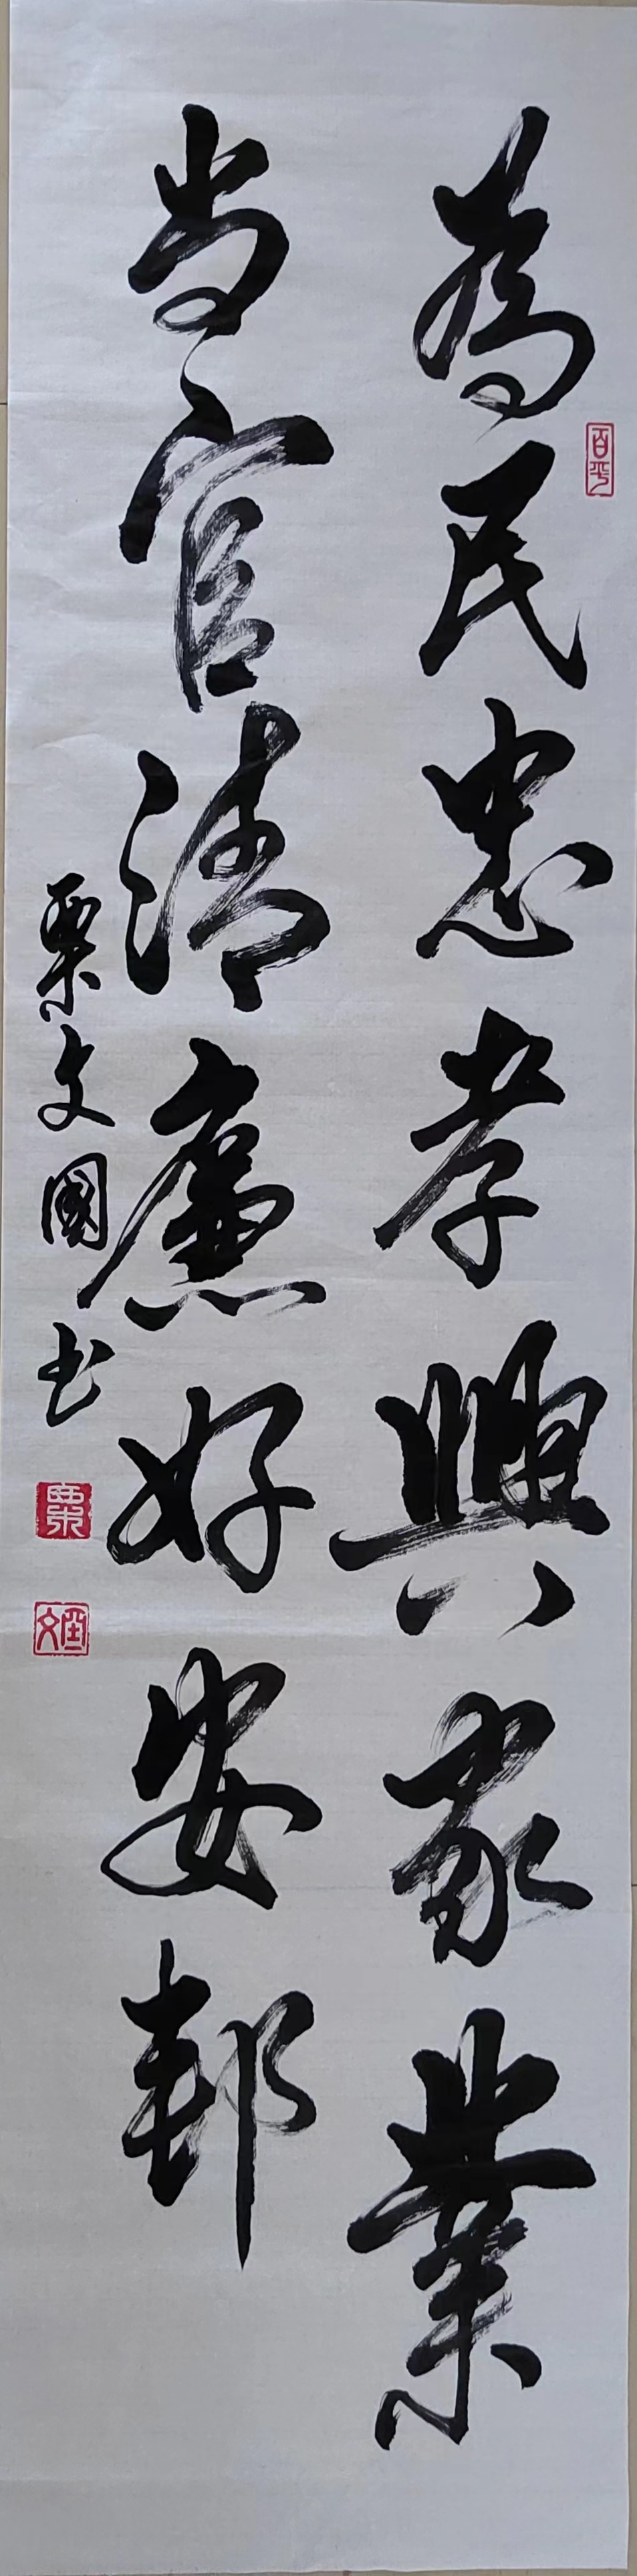 為民忠孝興家業
當官清廉好安邦
栗文國书
百平
栗
文国